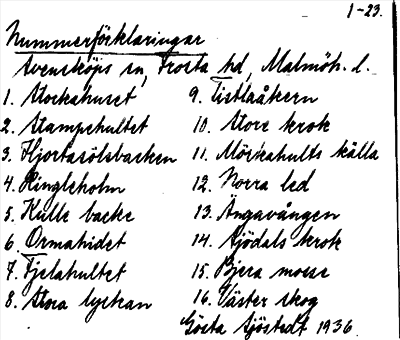 1-23.
Nummerförklaringar
Svensköps sn, Frosta hd, Malmöh. l.
1. Stockahuset
2. Stampehultet
3. Hjortasölsbacken
4. Kingleholm
5. Kulle backe
6. Ormahidet
7. Fjelahultet
8. Stora lyckan
9. Tistlaåkern
10. Store krok
11. Mörkahults källa
12. Norra led
13. Ängavången
14. Sjödals krok
15. Bjera mosse
16. Väster skog
Gösta Sjöstedt 1936.